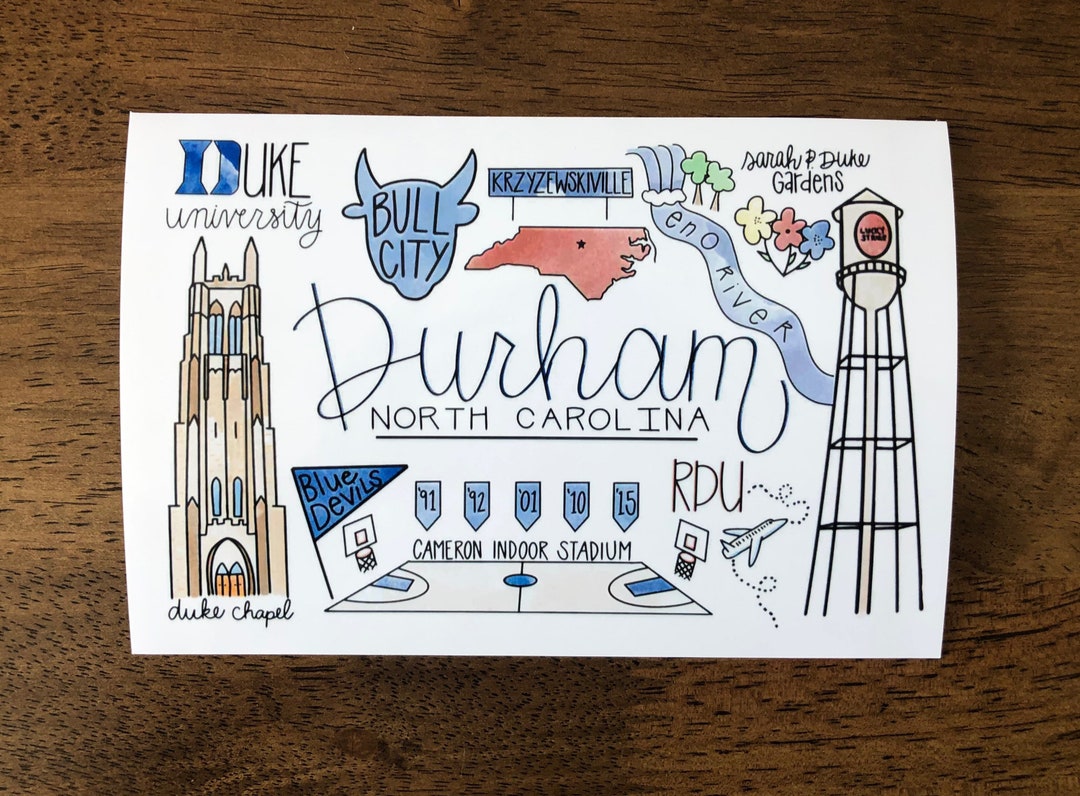 DUKE
university
BULL
CITY
KRZYZEWSKIVILLE
eno river
Sarah P. Duke
Gardens
LUCKY
STRIKE
Durham
NORTH CAROLINA
BLUE
DEVILS
'91
'92
'01
'10
'15
CAMERON INDOOR STADIUM
RDU
duke chapel